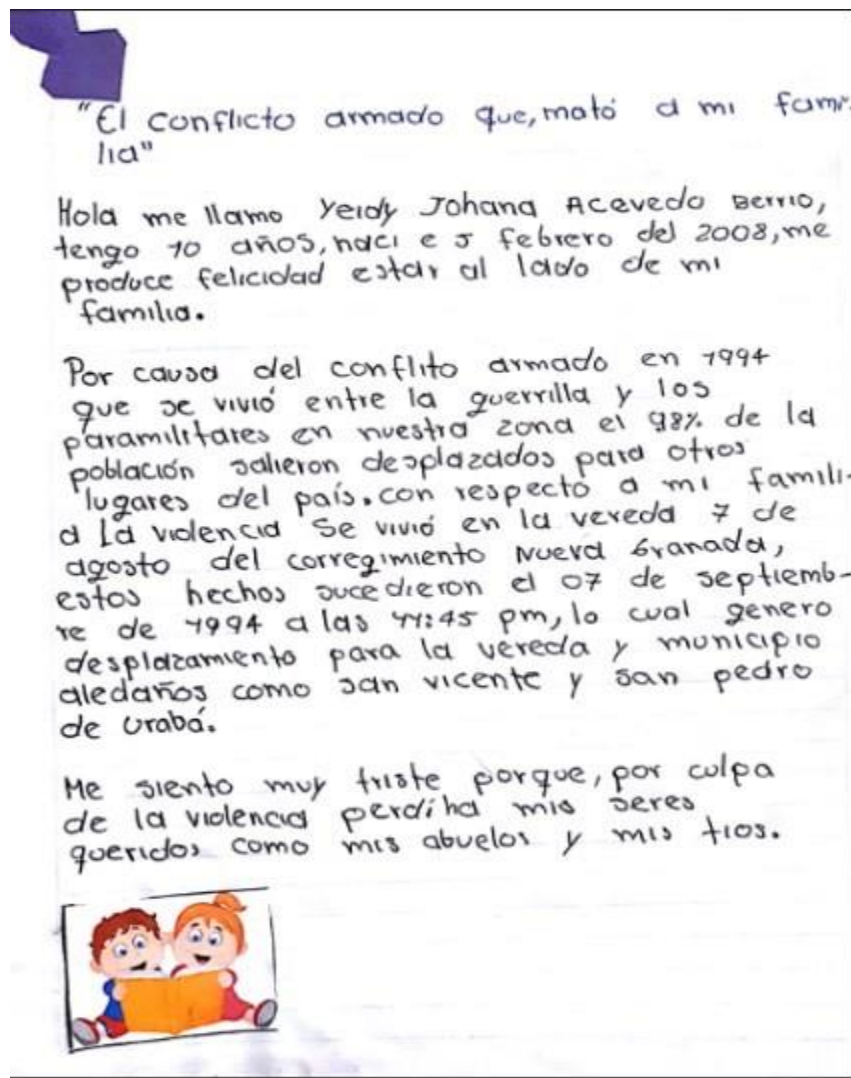 "El conflicto armado que, mató a mi fami-
lia"
Hola me llamo Yeidy Johana Acevedo Berrio,
tengo 10 años, naci e 5 febrero del 2008, me
produce felicidad estar al lado de mi
familia.
Por causa del conflito armado en 1994
que se vivió entre la guerrilla y los
paramilitares en nuestra zona el 98% de la
población salieron desplazados para otros
lugares del país. con respecto a mi famili-
a la violencia se vivió en la vereda 7 de
agosto del corregimiento Nueva Granada,
estos hechos sucedieron el 07 de septiemb-
re de 1994 a las 11:45 pm, lo cual genero
desplazamiento para la vereda y municipio
aledaños como san vicente y san pedro
de Urabá.
Me siento muy triste porque, por culpa
de la violencia perdi ha mis seres
queridos como mis abuelos y mis tios.